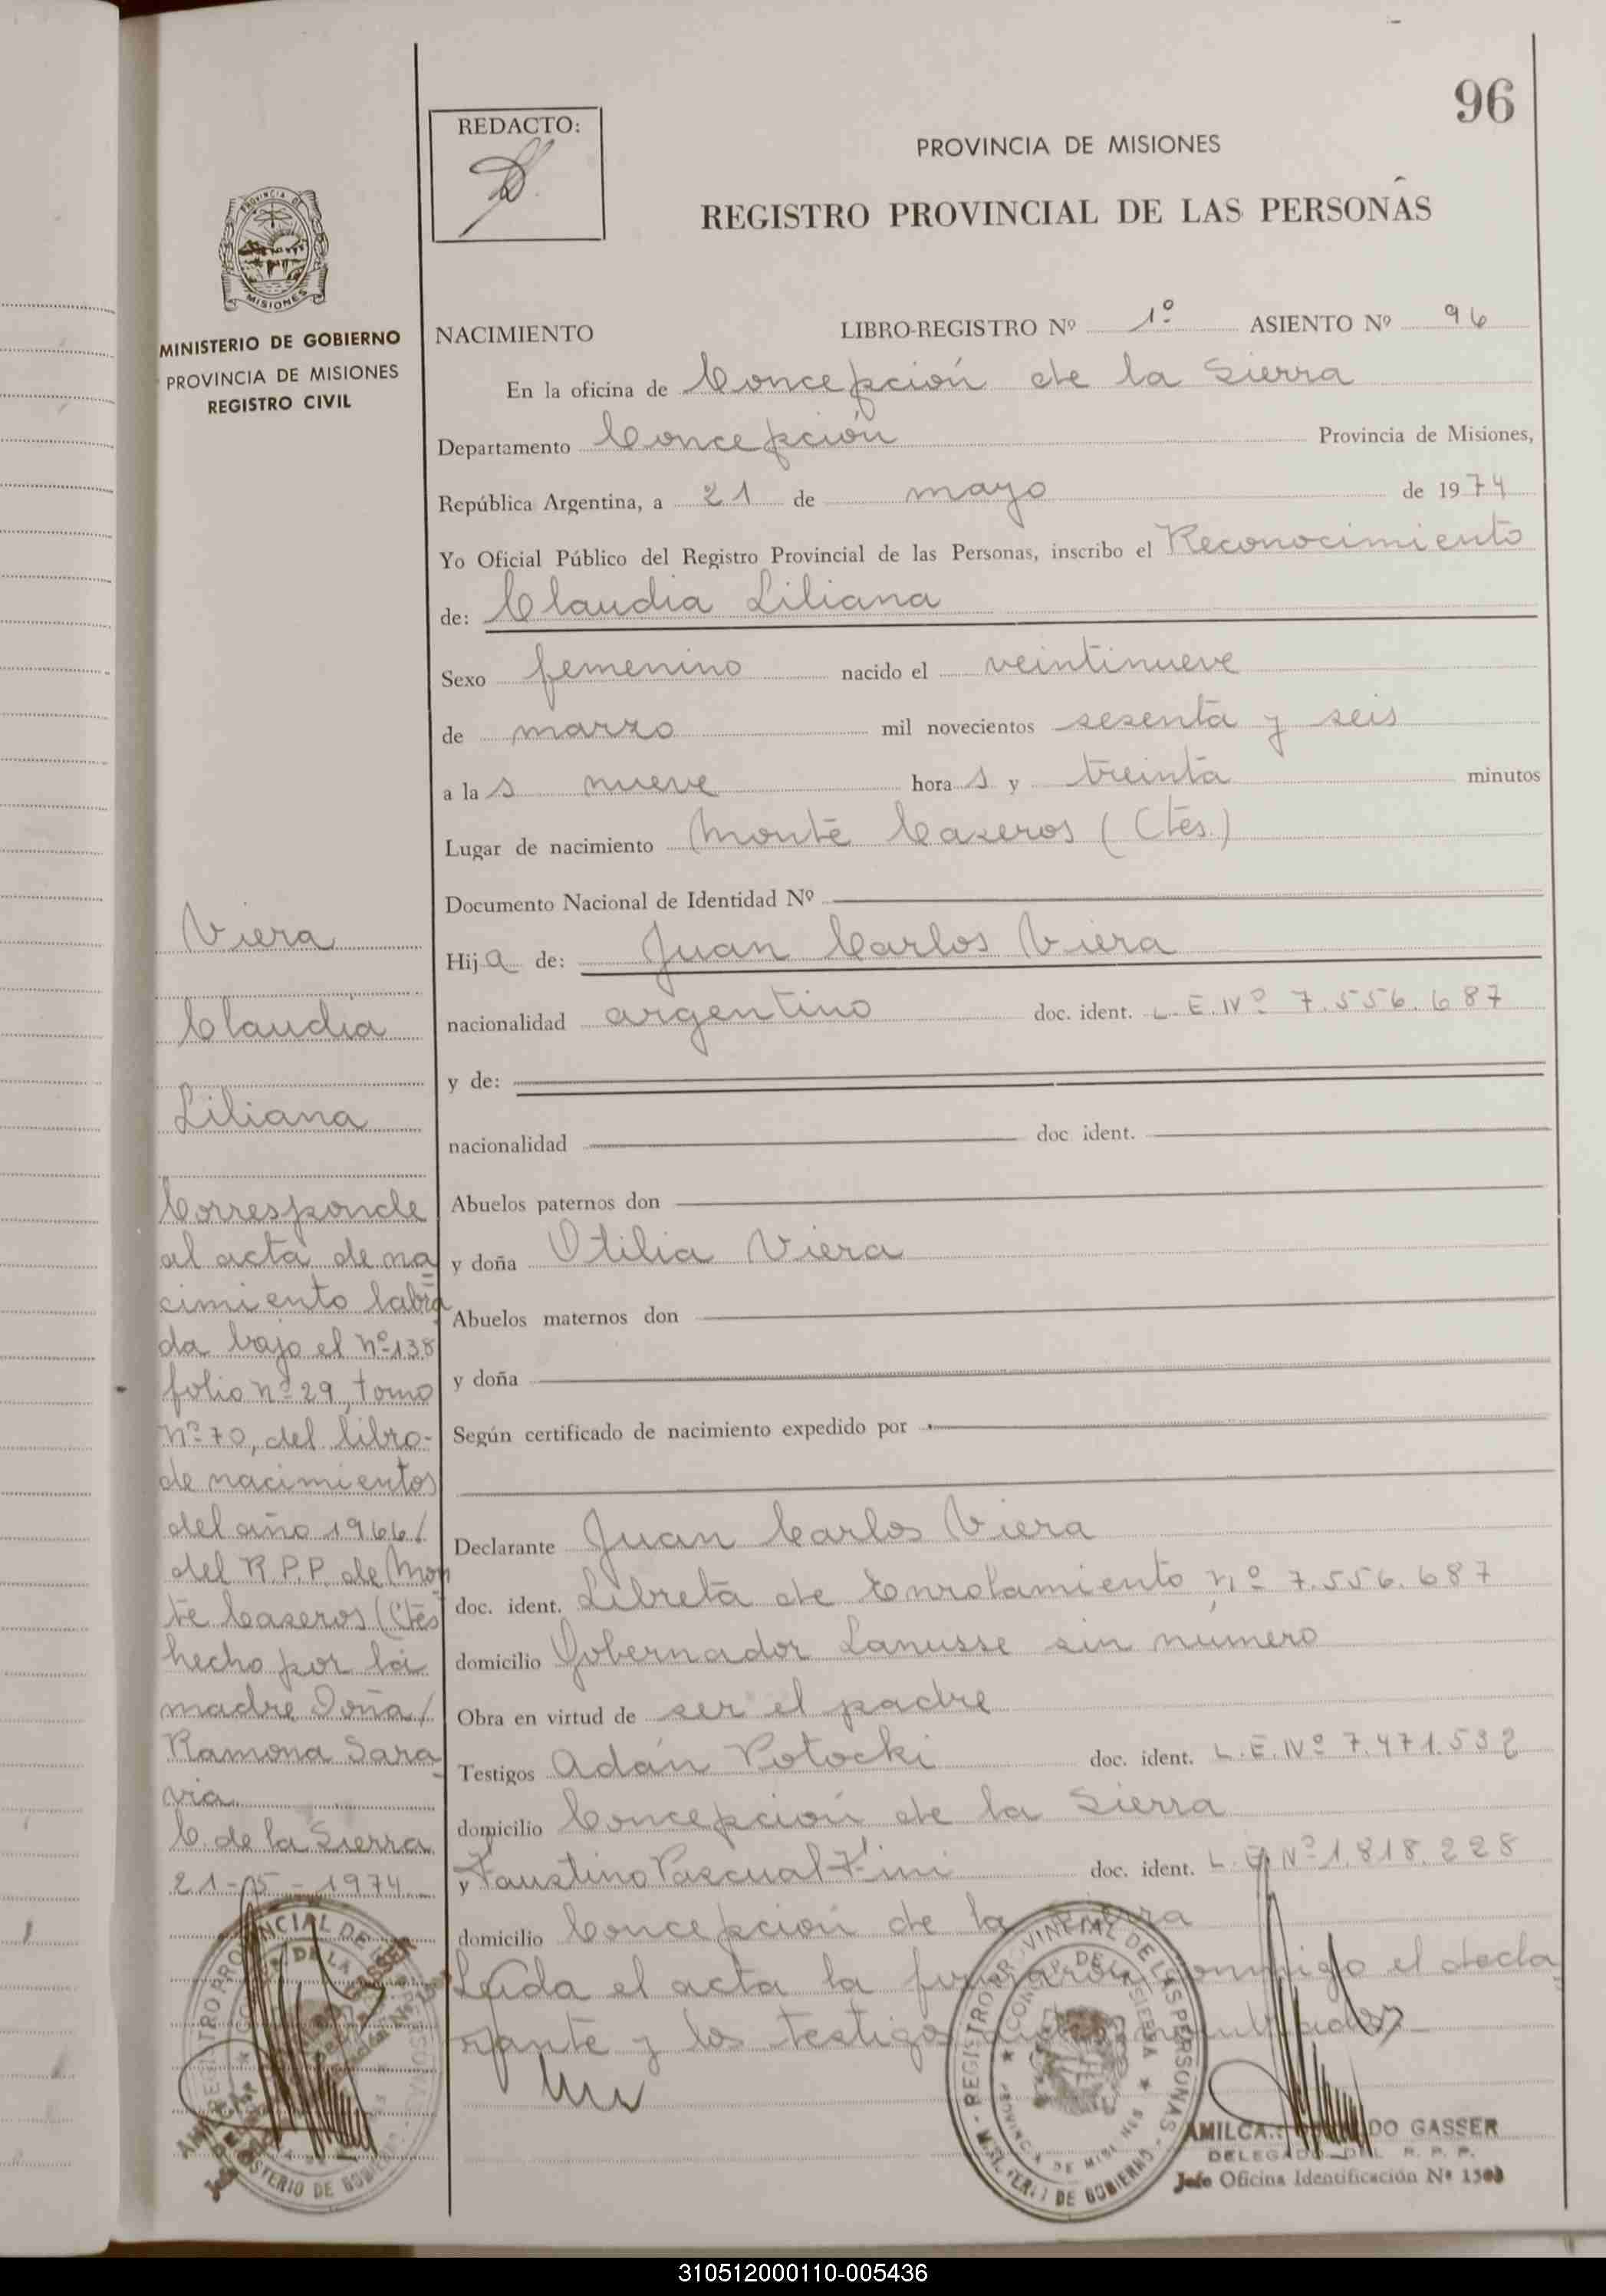 96
REDACTO:
PROVINCIA DE MISIONES
REGISTRO PROVINCIAL DE LAS PERSONAS
PROVINCIA DE
MISIONES
MINISTERIO DE GOBIERNO
PROVINCIA DE MISIONES
REGISTRO CIVIL
NACIMIENTO LIBRO-REGISTRO Nº 1º ASIENTO Nº 96
En la oficina de Concepción de la Sierra
Departamento Concepción Provincia de Misiones,
República Argentina, a 21 de mayo de 1974
Yo Oficial Público del Registro Provincial de las Personas, inscribo el Reconocimiento
de: Claudia Liliana
Sexo femenino nacido el veintinueve
de marzo mil novecientos sesenta y seis
a las nueve horas y treinta minutos
Lugar de nacimiento Monte Caseros (Ctes.)
Documento Nacional de Identidad Nº
Hija de: Juan Carlos Viera
nacionalidad argentino doc. ident. L.E.Nº 7.556.687
y de:
nacionalidad doc ident.
Abuelos paternos don
y doña Otilia Viera
Abuelos maternos don
y doña
Según certificado de nacimiento expedido por
Declarante Juan Carlos Viera
doc. ident. Libreta de Enrolamiento nº 7.556.687
domicilio Gobernador Lanusse sin número
Obra en virtud de ser el padre
Testigos Adán Potocki doc. ident. L.E.Nº 7.471.532
domicilio Concepción de la Sierra
y Faustino Pascual doc. ident. L.E.Nº 1.818.228
domicilio Concepción de la Sierra
Leída el acta la firmaron conmigo el decla
rante y los testigos nombrados
Viera
Claudia
Liliana
Corresponde
al acta de na=
cimiento labra
da bajo el nº 138
folio nº 29, tomo
nº 70, del libro-
de nacimientos
del año 1966/
del R.P.P. de Mon
te Caseros (Ctes
hecho por la
madre Doña/
Ramona Sara-
via
C. de la Sierra
21-05-1974
REGISTRO PROVINCIAL DE LAS PERSONAS
MINISTERIO DE GOBIERNO
DO GASSER
DELEGADO DEL R. P. P.
Jefe Oficina Identificación Nº
310512000110-005436